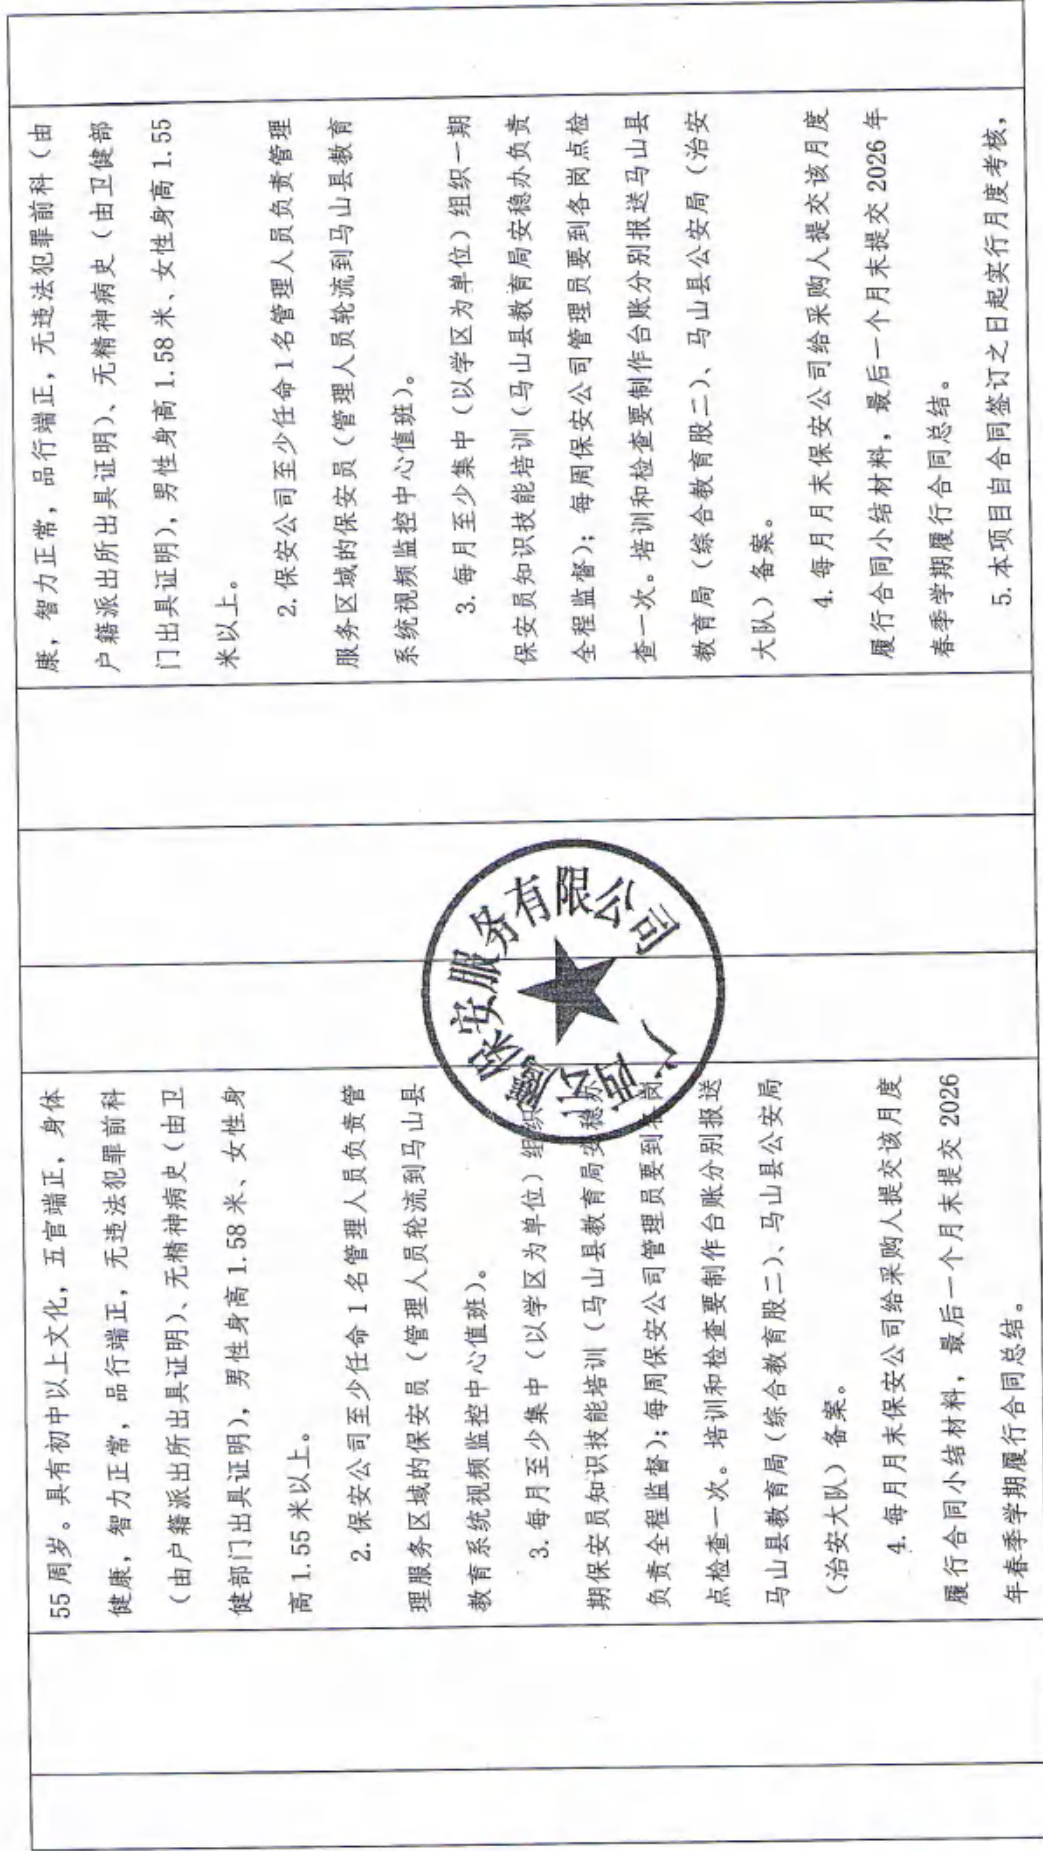 55周岁。具有初中以上文化，五官端正，身体
健康，智力正常，品行端正，无违法犯罪前科
（由户籍派出所出具证明）、无精神病史（由卫
健部门出具证明），男性身高1.58米、女性身
高1.55米以上。
2.保安公司至少任命1名管理人员负责管
理服务区域的保安员（管理人员轮流到马山县
教育系统视频监控中心值班）。
3.每月至少集中（以学区为单位）组织
期保安员知识技能培训（马山县教育局安稳办
负责全程监督）；每周保安公司管理员要到各岗
点检查一次。培训和检查要制作台账分别报送
马山县教育局（综合教育股二）、马山县公安局
（治安大队）备案。
4.每月月末保安公司给采购人提交该月度
履行合同小结材料，最后一个月末提交2026
年春季学期履行合同总结。
广西云鹰保安服务有限公司
康，智力正常，品行端正，无违法犯罪前科（由
户籍派出所出具证明）、无精神病史（由卫健部
门出具证明），男性身高1.58米、女性身高1.55
米以上。
2.保安公司至少任命1名管理人员负责管理
服务区域的保安员（管理人员轮流到马山县教育
系统视频监控中心值班）。
3.每月至少集中（以学区为单位）组织一期
保安员知识技能培训（马山县教育局安稳办负责
全程监督）；每周保安公司管理员要到各岗点检
查一次。培训和检查要制作台账分别报送马山县
教育局（综合教育股二）、马山县公安局（治安
大队）备案。
4.每月月末保安公司给采购人提交该月度
履行合同小结材料，最后一个月末提交2026年
春季学期履行合同总结。
5.本项目自合同签订之日起实行月度考核，